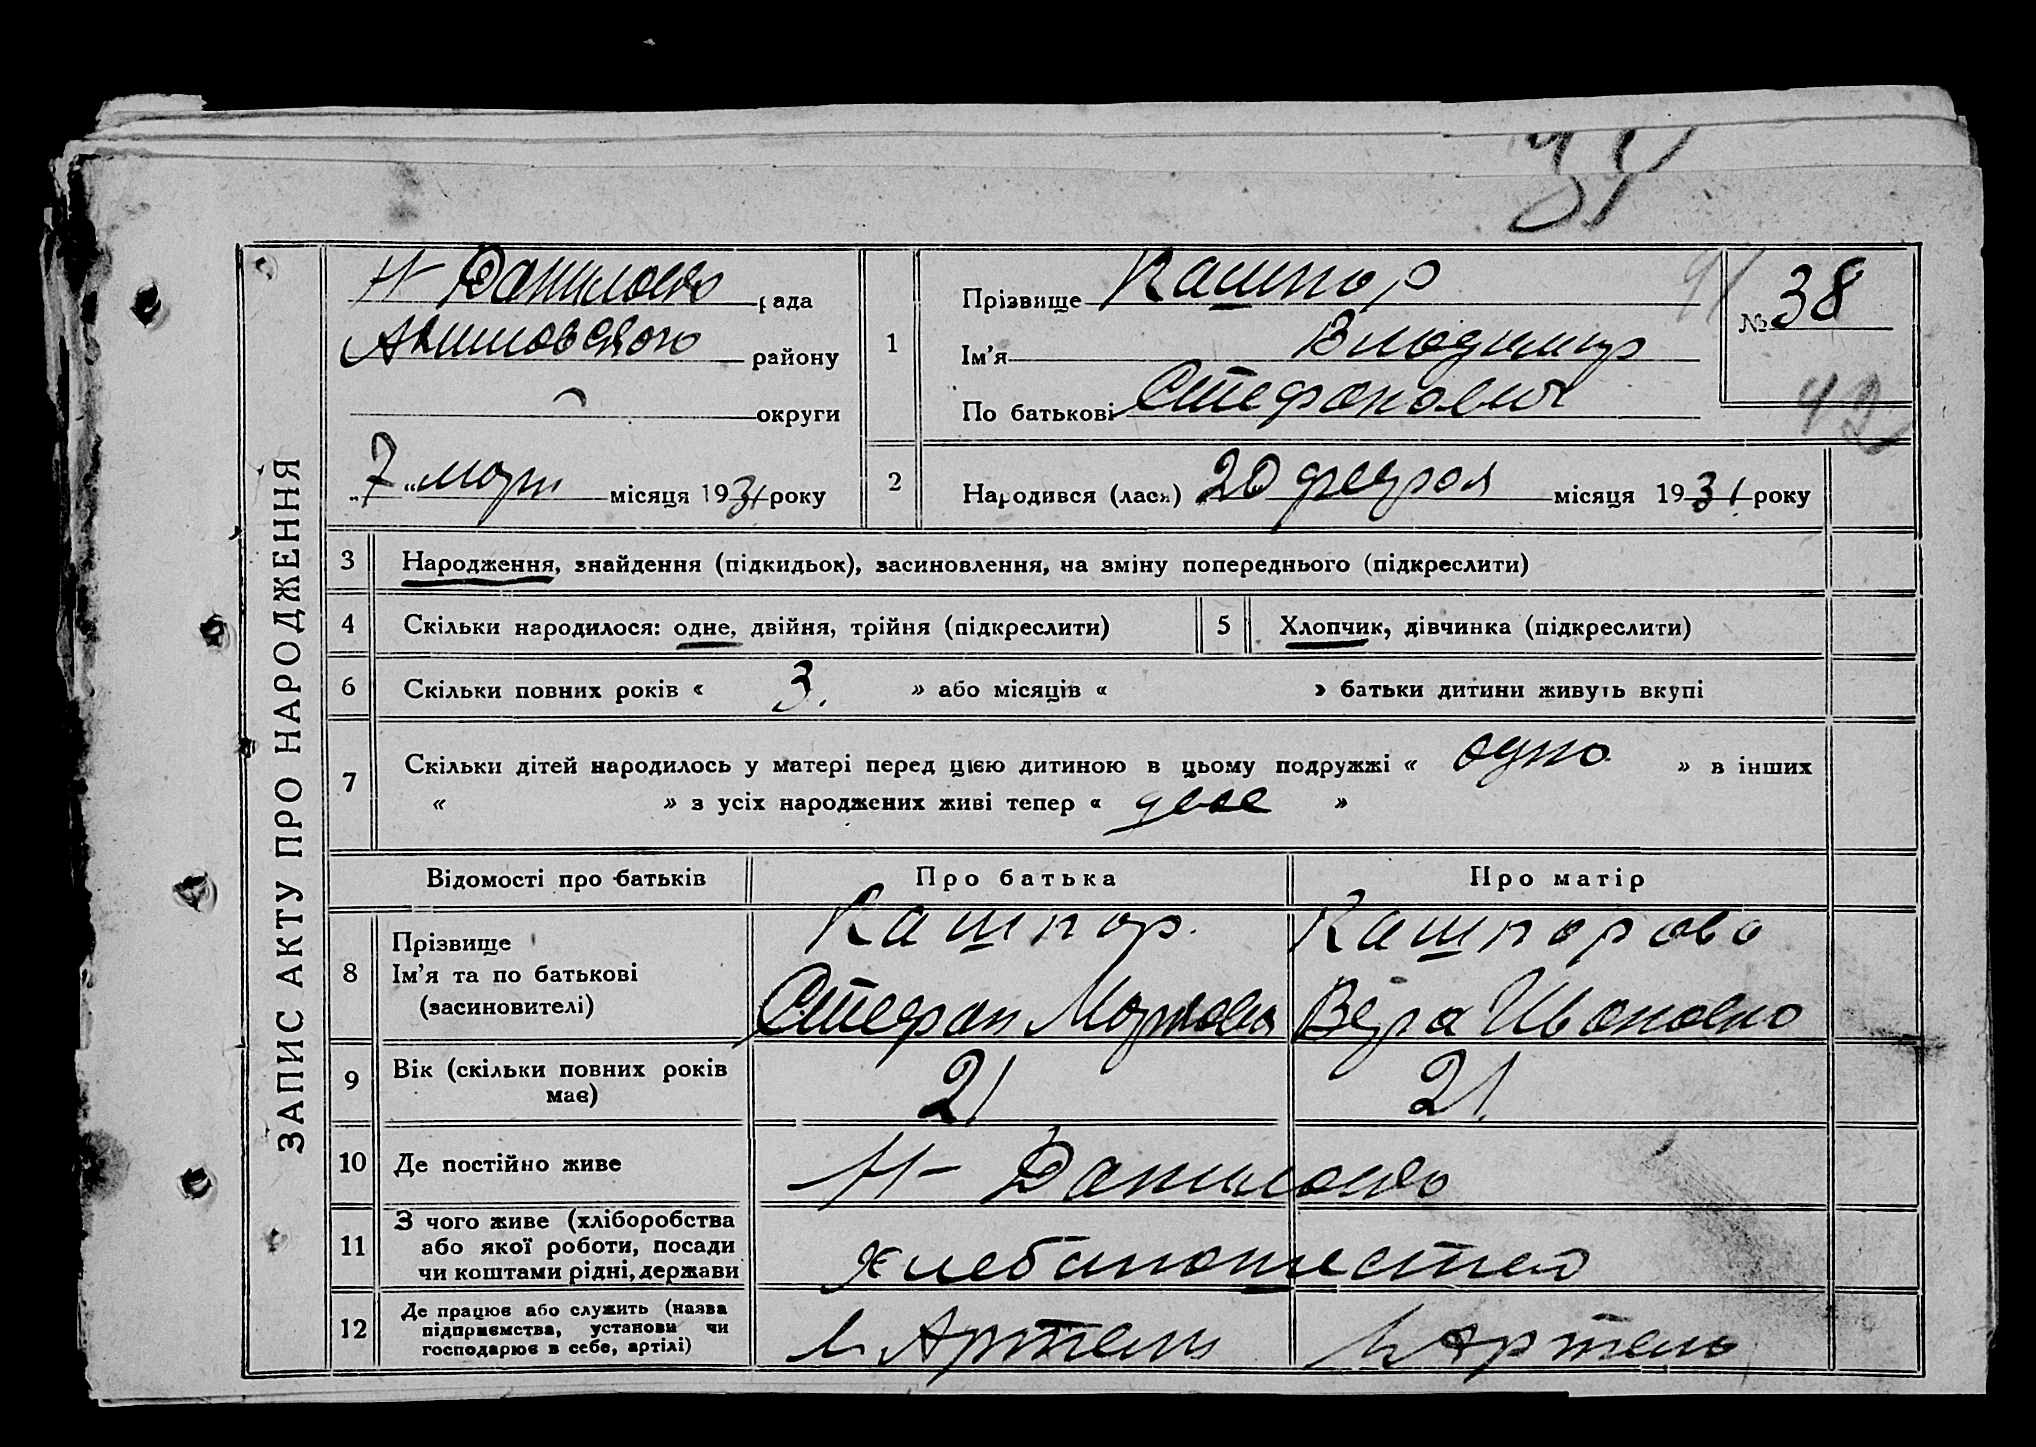 31
ЗАПИС АКТУ ПРО НАРОДЖЕННЯ
Н-Даниловка рада
Акимовского району
округи
"7" март місяця 1931 року
1
Прізвище Кашпор
Ім'я Владимир
По батькові Стефанович
№ 38
91
42
2
Народився (лася) 20 февраля місяця 1931 року
3 Народження, знайдення (підкидьок), засиновлення, на зміну попереднього (підкреслити)
4 Скільки народилося: одне, двійня, трійня (підкреслити)
5 Хлопчик, дівчинка (підкреслити)
6 Скільки повних років « 3. » або місяців « » батьки дитини живуть вкупі
7 Скільки дітей народилось у матері перед цією дитиною в цьому подружжі « одно » в інших
« » з усіх народжених живі тепер « двое »
Відомості про батьків Про батька Про матір
8 Прізвище
Ім'я та по батькові
(засиновителі)
Кашпор.
Стефан
Кашпорова
Вера Ивановна
9 Вік (скільки повних років
має)
21
21.
10 Де постійно живе Н-Даниловка
11 З чого живе (хліборобства
або якої роботи, посади
чи коштами рідні, держави
12 Де працює або служить (назва
підприємства, установи чи
господарює в себе, артілі)
Артель
Артель